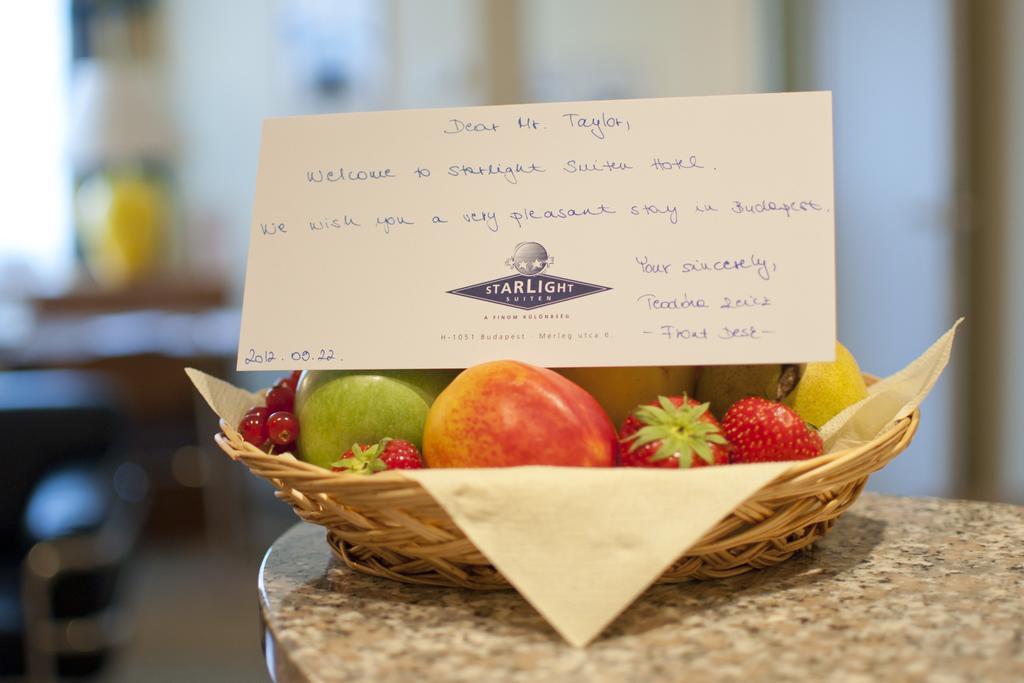 Dear Mr. Taylor,
Welcome to Starlight Suiten Hotel.
We wish you a very pleasant stay in Budapest.
STARLIGHT
SUITEN
A FINOM KÜLÖNBSÉG
H-1051 Budapest · Mérleg utca 6.
Your sincerely,
Teodóra
- Front Desk -
2012. 09. 22.